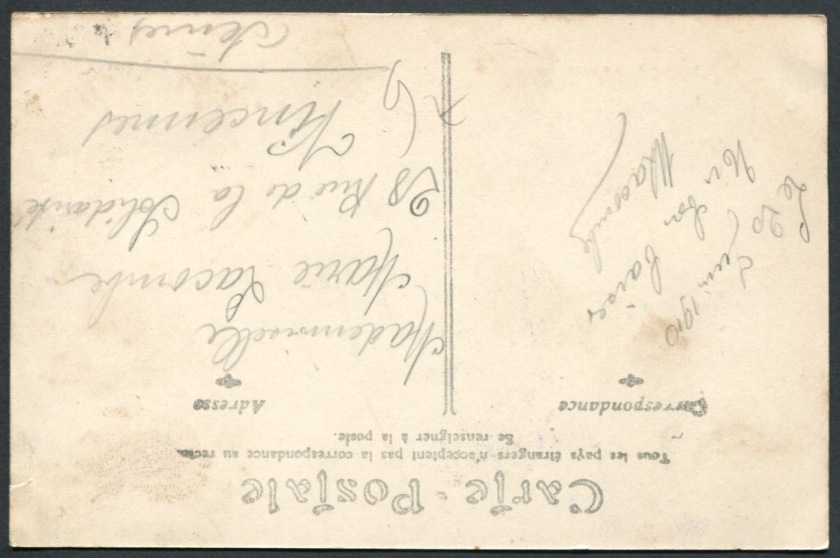 Carte Postale
Tous les pays étrangers n'acceptent pas la correspondance au recto
Se renseigner à la poste.
Correspondance
Adresse
Le 20 Juin 1910
bon baiser
Mademoiselle
Marie Lacombe
28 Rue de la Solidarité
Vincennes